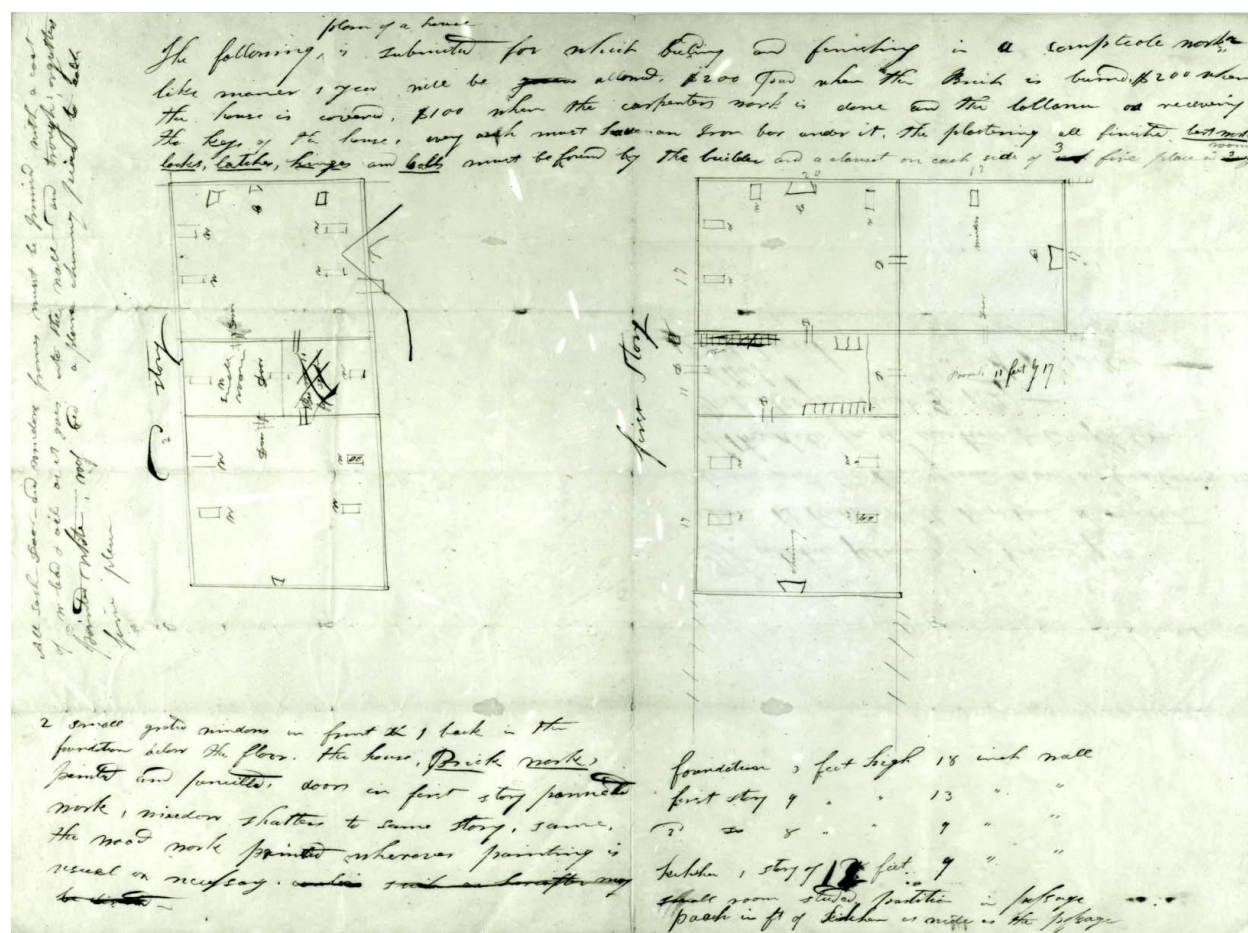 plan of a house
The following, is submitted for which building and finishing in a compleate work
like maner 1 year will be allowed. $200 paid when the Brick is burned. $200 when
the house is covered, $100 when the carpenters work is done and the ballance on receiving
the keys of the house, every must have an Iron bar under it, the plastering all finished
locks, latches, hinges and bolts must be found by the builder and a closset on each side of 3 fire place in
All sash Door and window frames must be primed with a coat
of w lead & oil as it goes into the wall and trough & gutters
painted white roof red a plane chimney piece to each
fire place
2 story
small
room
Door
Door
first story
20
17
17
11
17
window
Door
Porch 11 feet by 17
chimney
2 small grated windows in front & 1 back in the
foundation below the floor. the house, Brick work,
painted and pencilled, doors in first story pannell
work, window shutters to same story, same,
the wood work painted wherever painting is
usual or necessary.
foundation 3 feet high 18 inch wall
first story 9 " " 13 " "
2 Do 8 " " 9 " "
kitchen 1 story of 12 feet 9 " "
small room studded partition in passage
poach in ft of kitchen as wide as the passage